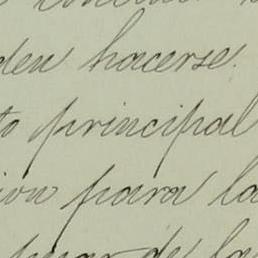 den hacerse.
to principal
ion para la
de la